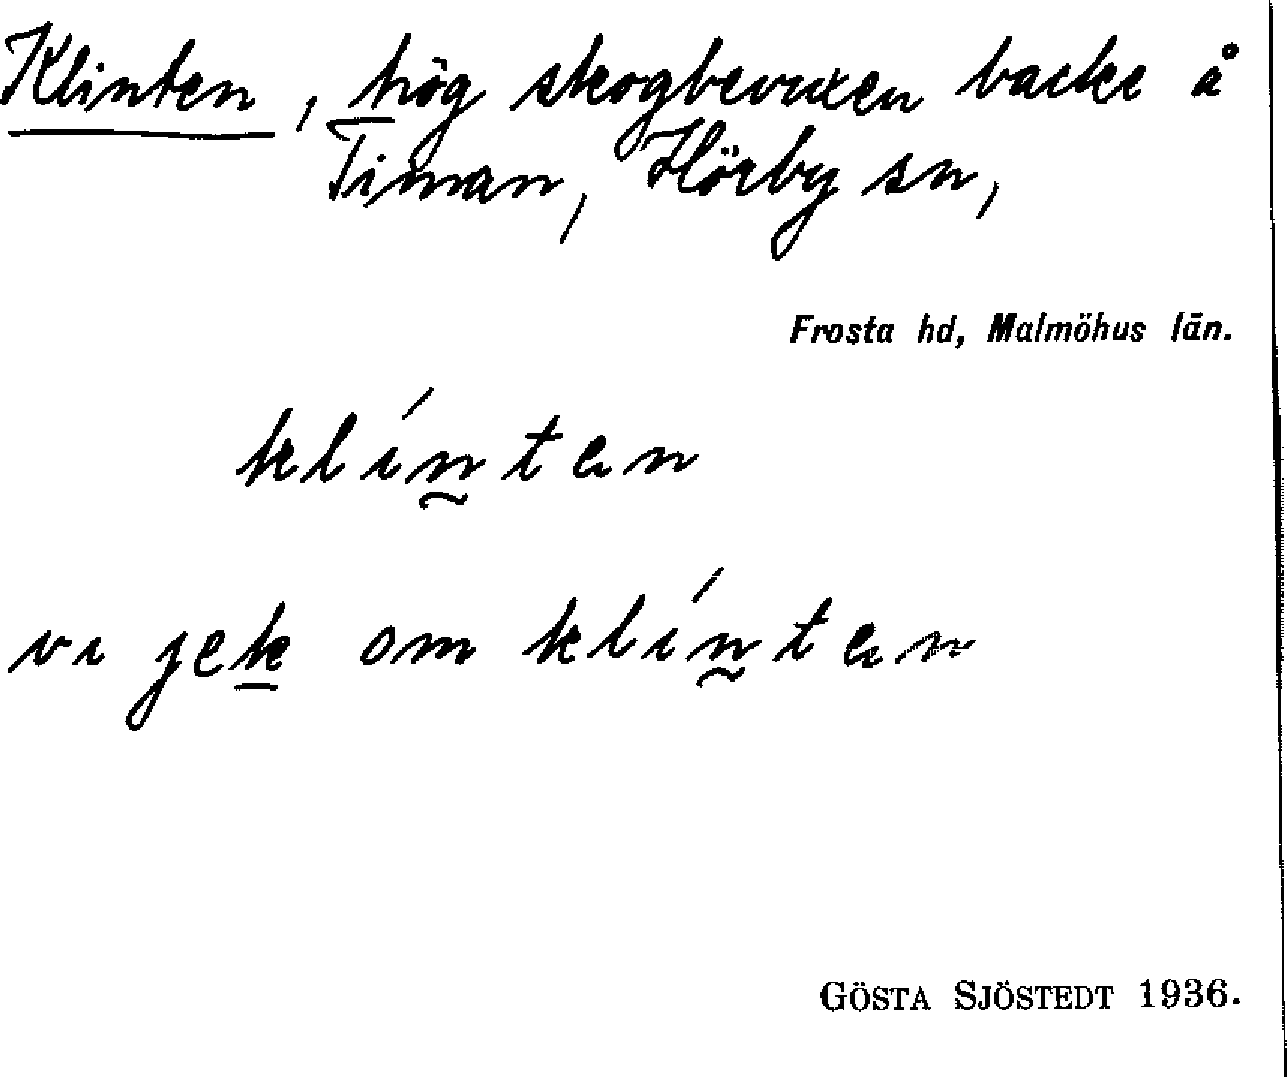 Klinten, hög skogbevuxen backe å
Timan, Hörby sn,
Frosta hd, Malmöhus län.
klín̰tən
vı jek̲ om klín̰tən
GÖSTA SJÖSTEDT 1936.